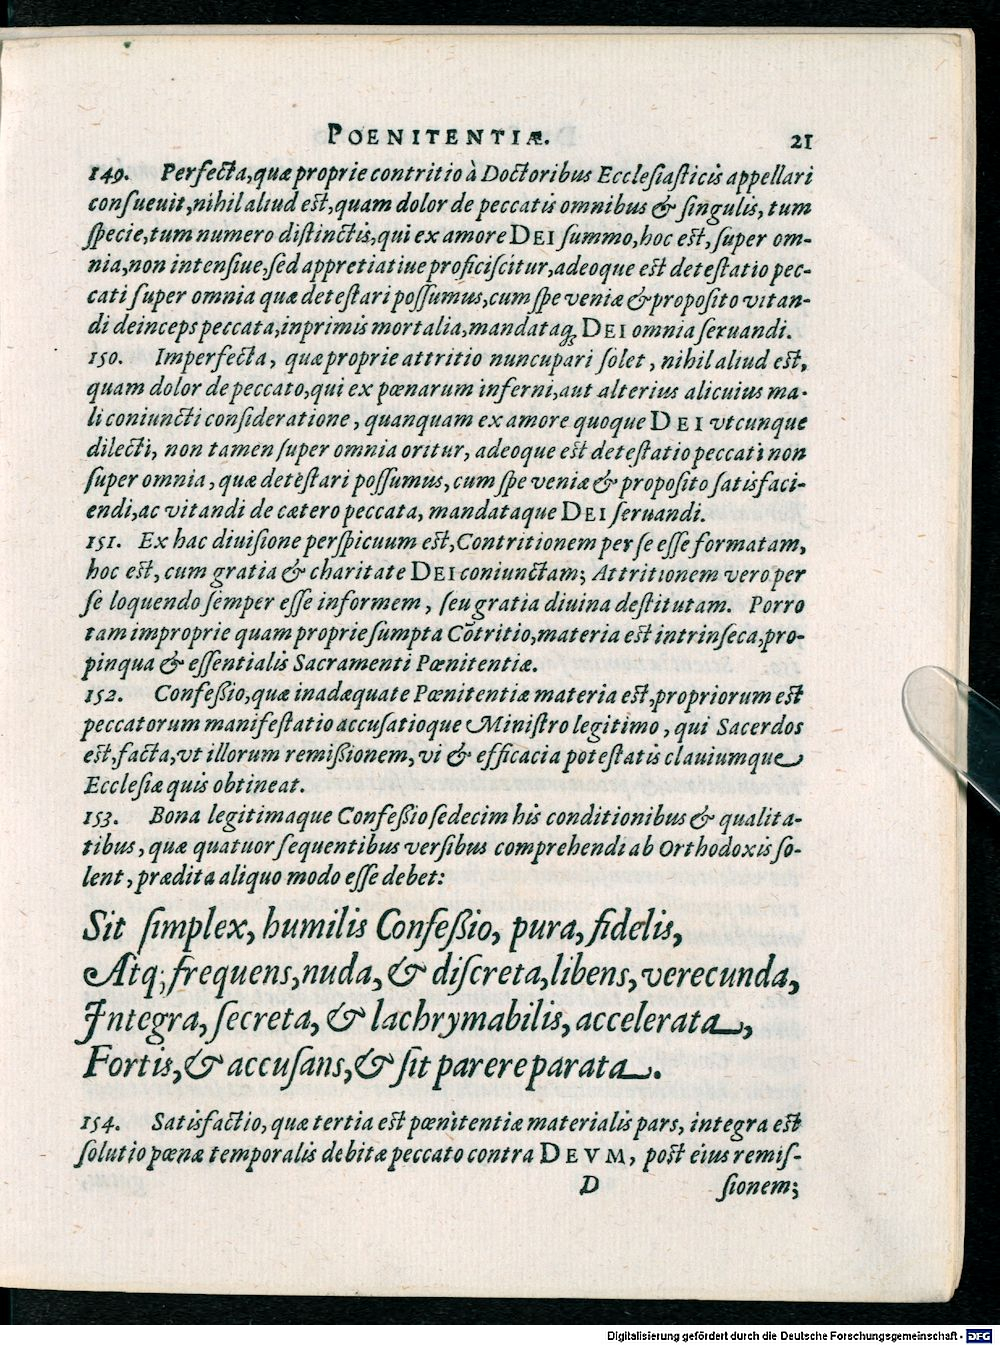 POENITENTIÆ. 21
149. Perfecta, quæ proprie contritio à Doctoribus Ecclesiasticis appellari
consueuit, nihil aliud est, quam dolor de peccatis omnibus & singulis, tum
specie, tum numero distinctis, qui ex amore DEI summo, hoc est, super om-
nia, non intensiue, sed appretiatiue proficiscitur, adeoque est detestatio pec-
cati super omnia quæ detestari possumus, cum spe veniæ & proposito vitan-
di deinceps peccata, inprimis mortalia, mandataq; DEI omnia seruandi.
150. Imperfecta, quæ proprie attritio nuncupari solet, nihil aliud est,
quam dolor de peccato, qui ex pœnarum inferni, aut alterius alicuius ma-
li coniuncti consideratione, quanquam ex amore quoque DEI vtcunque
dilecti, non tamen super omnia oritur, adeoque est detestatio peccati non
super omnia, quæ detestari possumus, cum spe veniæ & proposito satisfaci-
endi, ac vitandi de cætero peccata, mandataque DEI seruandi.
151. Ex hac diuisione perspicuum est, Contritionem per se esse formatam,
hoc est, cum gratia & charitate DEI coniunctam; Attritionem vero per
se loquendo semper esse informem, seu gratia diuina destitutam. Porro
tam improprie quam proprie sumpta Cõtritio, materia est intrinseca, pro-
pinqua & essentialis Sacramenti Pœnitentiæ.
152. Confeßio, quæ inadæquate Pœnitentiæ materia est, propriorum est
peccatorum manifestatio accusatioque Ministro legitimo, qui Sacerdos
est, facta, vt illorum remißionem, vi & efficacia potestatis clauiumque
Ecclesiæ quis obtineat.
153. Bona legitimaque Confeßio sedecim his conditionibus & qualita-
tibus, quæ quatuor sequentibus versibus comprehendi ab Orthodoxis so-
lent, prædita aliquo modo esse debet:
Sit simplex, humilis Confeßio, pura, fidelis,
Atq; frequens, nuda, & discreta, libens, verecunda,
Integra, secreta, & lachrymabilis, accelerata,
Fortis, & accusans, & sit parere parata.
154. Satisfactio, quæ tertia est pœnitentiæ materialis pars, integra est
solutio pœnæ temporalis debitæ peccato contra DEVM, post eius remis-
D sionem;
Digitalisierung gefördert durch die Deutsche Forschungsgemeinschaft - DFG